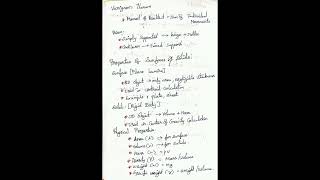 Varignon's Theorem
• Moment of Resultant = Sum of Individual Moments
Beam:
• Simply Supported → hinge + roller
• Cantilever → Fixed Support
Properties of Surfaces & Solids:
Surface [Plane Lamina]
• 2D Object → only area, negligible thickness
• Used in centroid calculation
• Example: plate, sheet
Solid: [Rigid Body]
• 3D Object → Volume + Mass
• Used in Center of Gravity Calculation
Physical Properties:
• Area (A) → for Surface
• Volume (V) → for Solids
• Mass (m) = ρV
• Density (ρ) = Mass/Volume
• Weight (W) = mg
• Specific weight (γ) = Weight/Volume